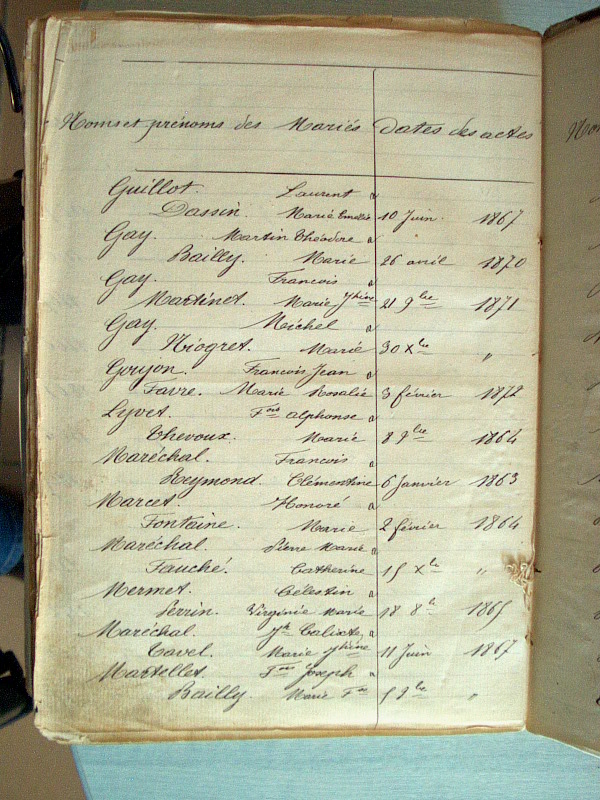 Noms et prénoms des Mariés Dates des actes
Guillot. Laurent a
Dassin. Marie Emélie 10 Juin 1867
Gay. Martin Théodore a
Bailly. Marie 26 avril 1870
Gay. François a
Martinet. Marie Jphine 21 9bre 1871
Gay. Michel a
Niogret. Marie 30 Xbre "
Goujon. François Jean a
Favre. Marie Rosalie 3 février 1872
Lyvet. Fois Alphonse a
Thevoux. Marie 8 9bre 1864
Maréchal. François a
Reymond. Clémentine 6 Janvier 1863
Marcet Honoré a
Fontaine. Marie 2 février 1864
Maréchal. Pierre Marie a
Fauché. Catherine 15 Xbre "
Mermet. Célestin a
Perrin. Virginie Marie 18 8bre 1865
Maréchal. Jph Calixte, a
Tavel. Marie Jphine 11 Juin 1867
Martellet. Fois Joseph a
Bailly. Marie Foise 5 9bre "